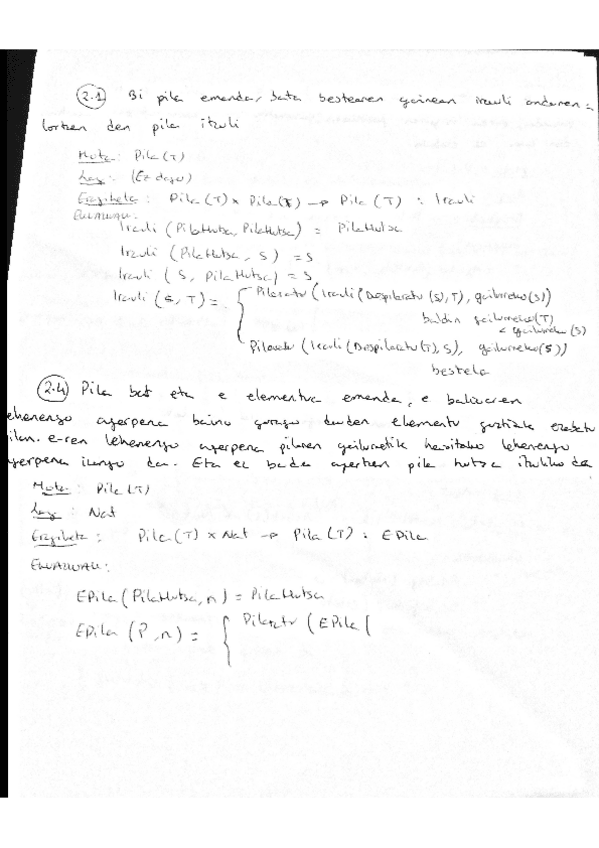 2.1 Bi pila emanda, bata bestearen gainean irauli ondoren
lortzen den pila itzuli
Mota: Pila(T)
Lag: (Ez dago)
Eragiketa: Pila(T) x Pila(T) → Pila (T) : Irauli
EKUAZIOAK:
Irauli (PilaHutsa, PilaHutsa) = PilaHutsa
Irauli (PilaHutsa, S) = S
Irauli (S, PilaHutsa) = S
Irauli (S, T) = { Pilaratu (Irauli(Despilaratu (S), T), gailurreko(S))
baldin gailurreko(T)
< gailurreko (S)
Pilaratu (Irauli (Despilaratu(T), S), gailurreko(S))
bestela
2.4 Pila bat eta e elementua emanda, e balioaren
lehenengo agerpena baino gorago dauden elementu guztiak ezabatu
pilan. e-ren lehenengo agerpena pilaren gailurretik hasitako lehenengo
agerpena izango da. Eta ez bada agertzen pila hutsa itzuliko da
Mota: Pila(T)
Lag: Nat
Eragiketa: Pila(T) x Nat → Pila (T) : EPila
EKUAZIOAK:
EPila (PilaHutsa, n) = PilaHutsa
EPila (P, n) = { Pilaratu (EPila (